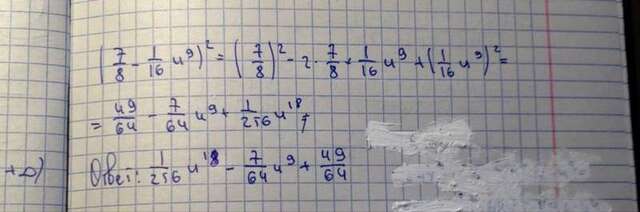 (7/8 - 1/16 u⁹)² = (7/8)² - 2 · 7/8 · 1/16 u⁹ + (1/16 u⁹)² =
= 49/64 - 7/64 u⁹ + 1/256 u¹⁸;
Ответ: 1/256 u¹⁸ - 7/64 u⁹ + 49/64